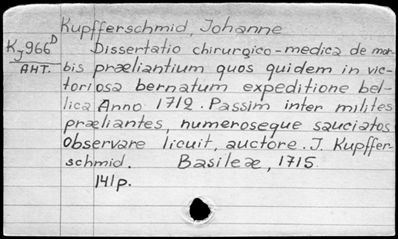 Kupfferschmid, Johanne
KJ966D Dissertatio chirurgico-medica de mor-
AHT. bis præliantium quos quidem in vic-
toriosa bernatum expeditione bel-
lica Anno 1712. Passim inter milites
præliantes, numeroseque sauciatos
observare licuit, auctore. J. Kupffer-
schmid. Basileæ, 1715
141p.